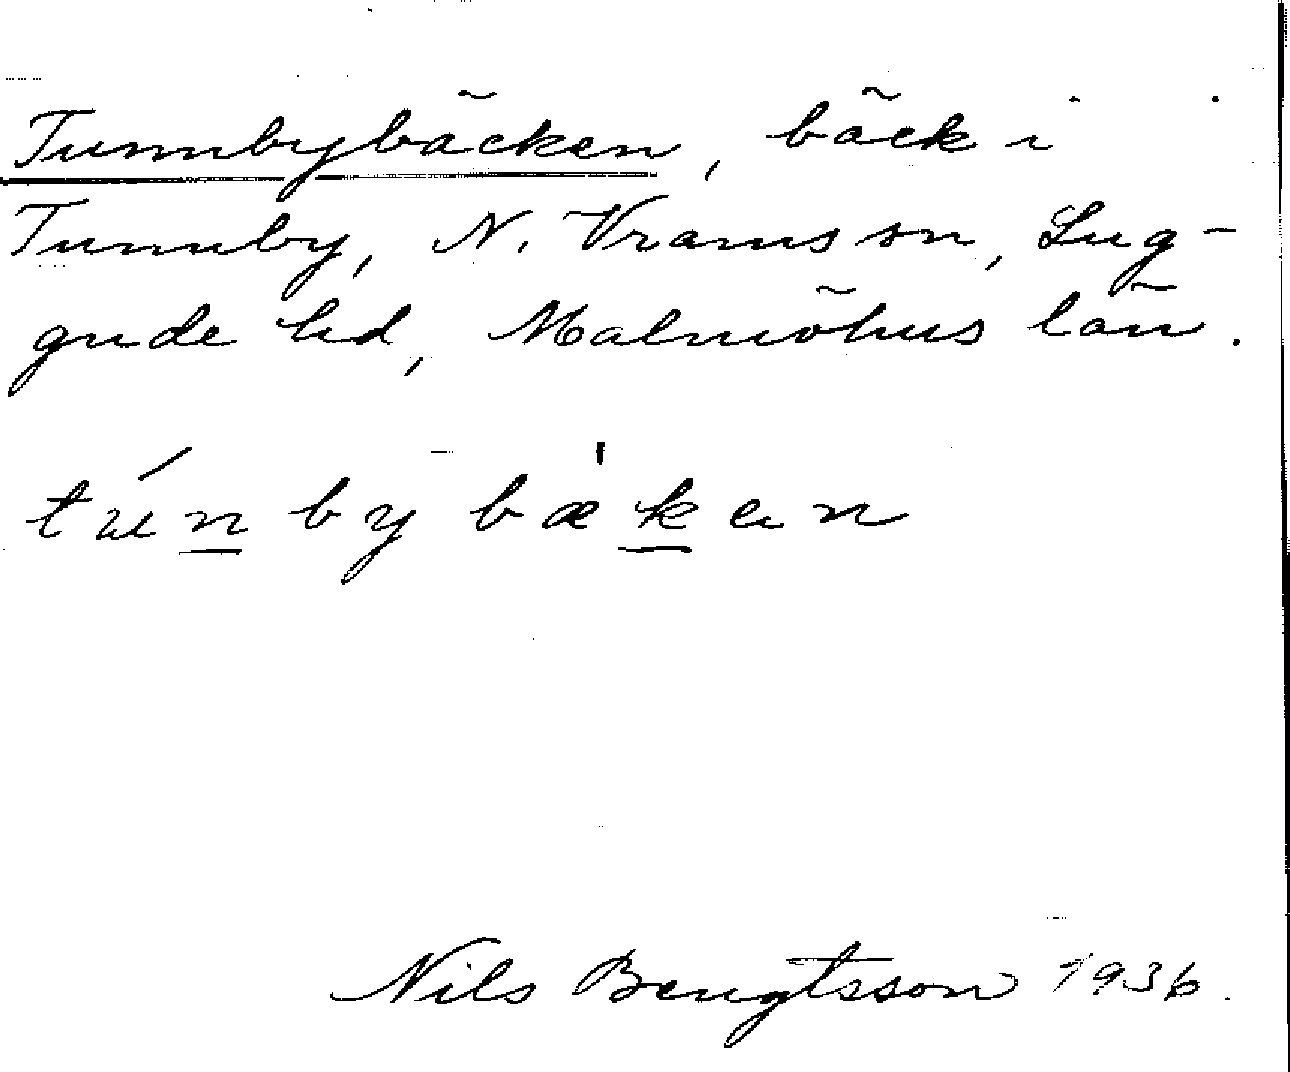 Tunnbybäcken, bäck i
Tunnby, N. Vrams sn, Lug-
gude hd, Malmöhus län.
túnbybæ'kan
Nils Bengtsson 1936.